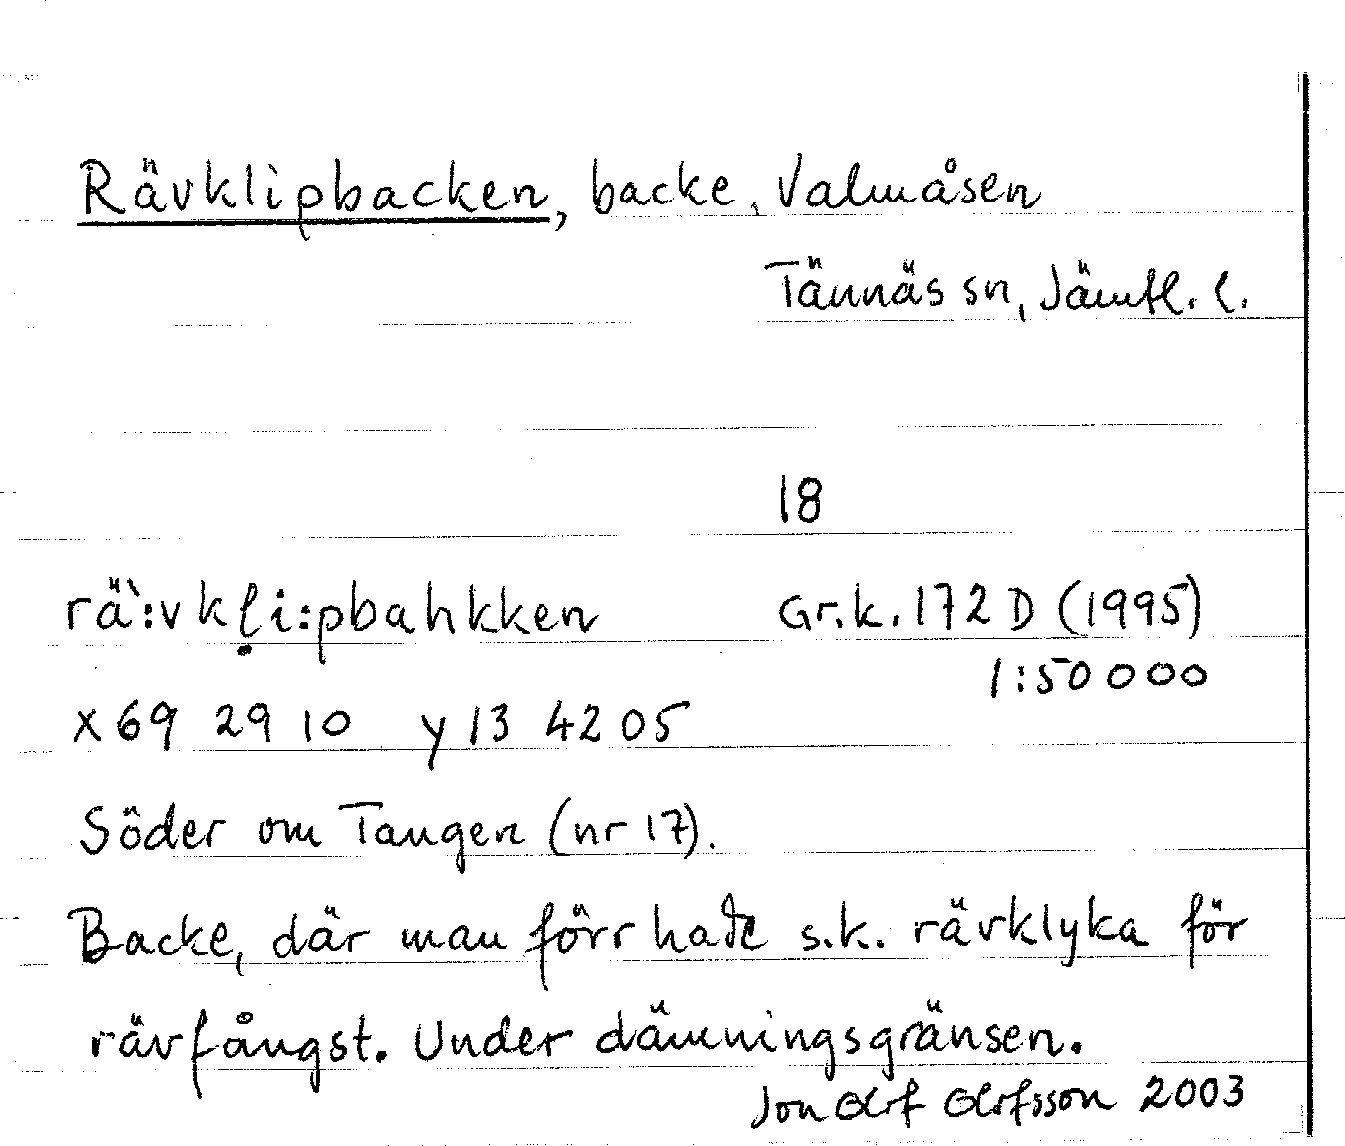 Rävklipbacken, backe, Valmåsen
Tännäs sn, Jämtl. l.
18
rä`:vkḷi:pbahkken Gr.k. 172 D (1995)
1:50 000
x 69 29 10 y 13 42 05
Söder om Tangen (nr 17).
Backe, där man förr hade s.k. rävklyka för
rävfångst. Under dämningsgränsen.
Jon Olof Olofsson 2003